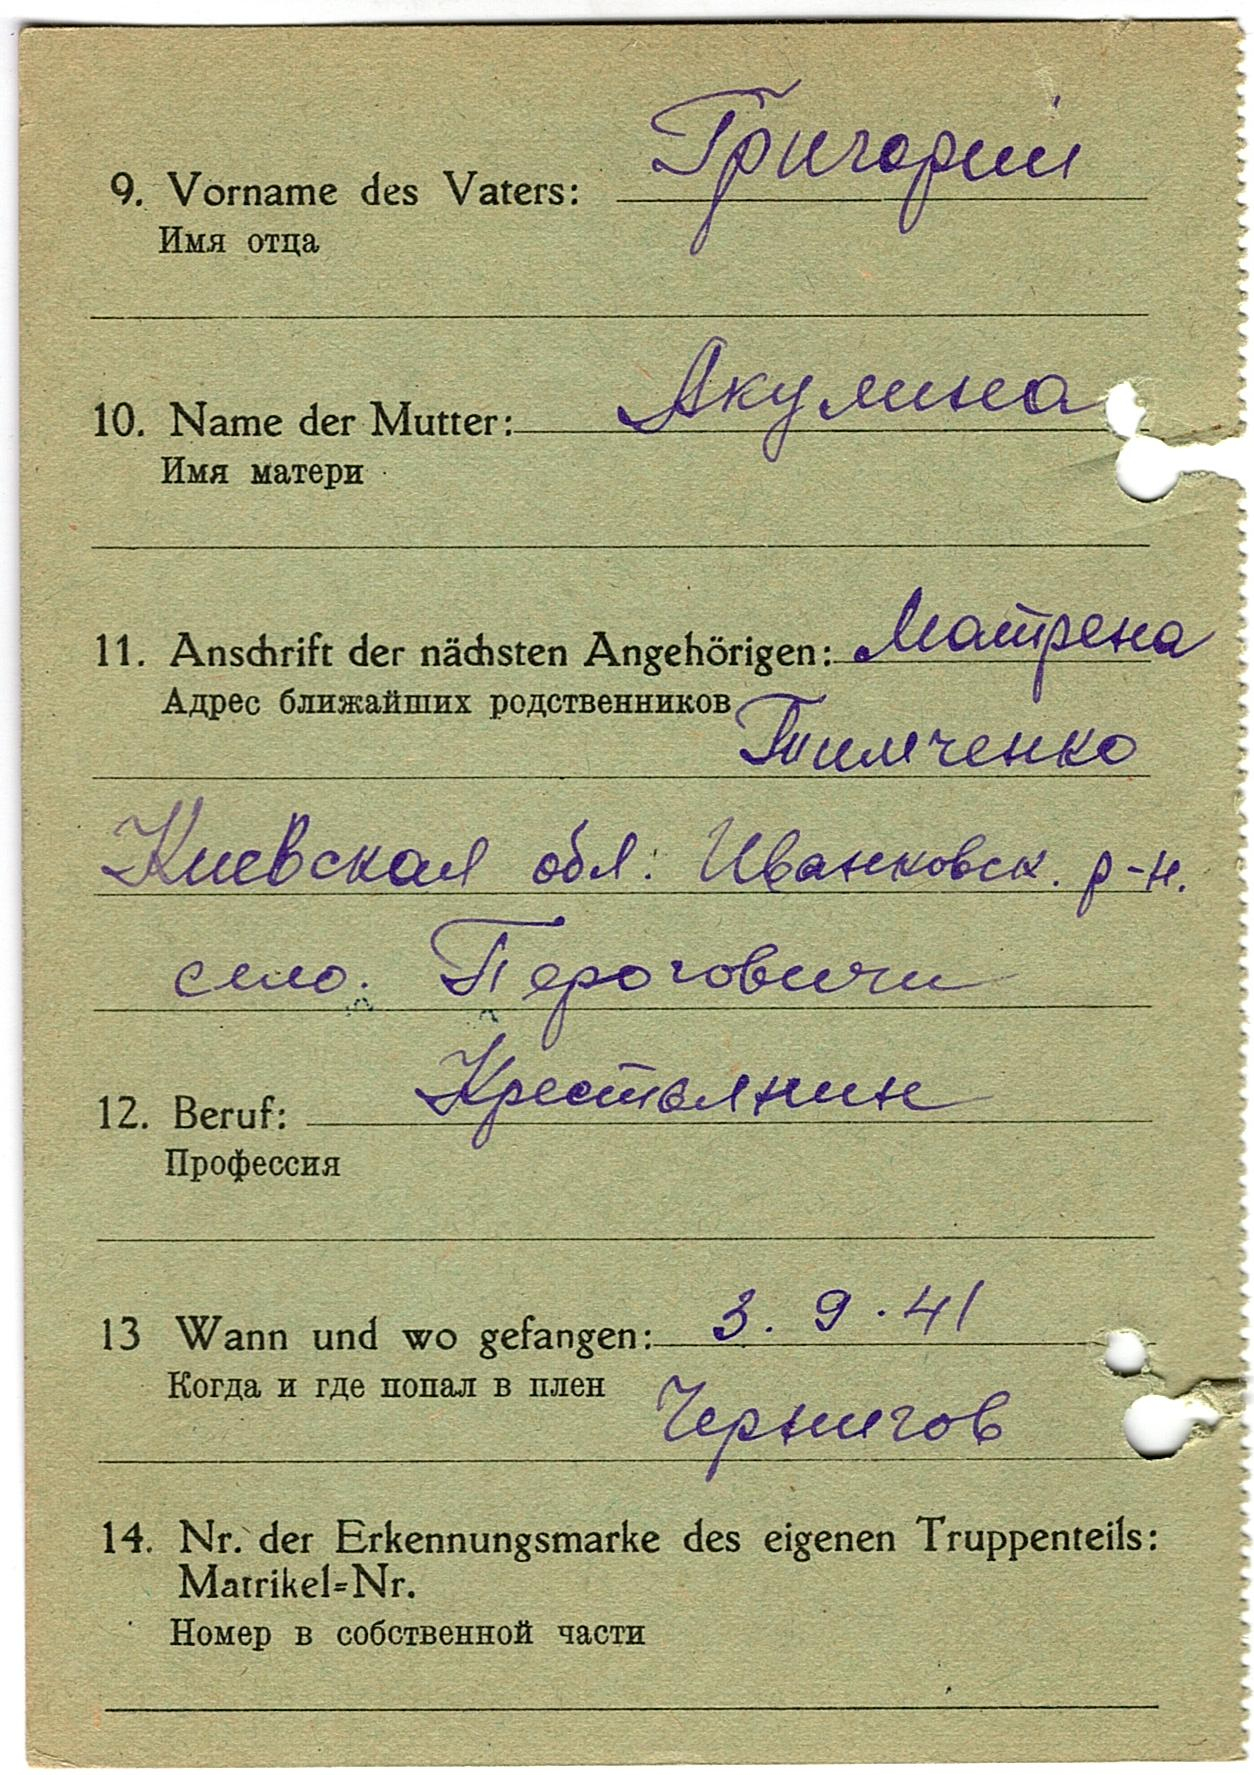 9. Vorname des Vaters: Григорий
Имя отца
10. Name der Mutter: Акулина
Имя матери
11. Anschrift der nächsten Angehörigen: Матрена
Адрес ближайших родственников
Тимченко
Киевская обл. Иванковск. р-н.
село. Пероговичи
12. Beruf: Крестьянин
Профессия
13 Wann und wo gefangen: 3. 9. 41
Когда и где попал в плен
Чернигов
14. Nr. der Erkennungsmarke des eigenen Truppenteils:
Matrikel=Nr.
Номер в собственной части